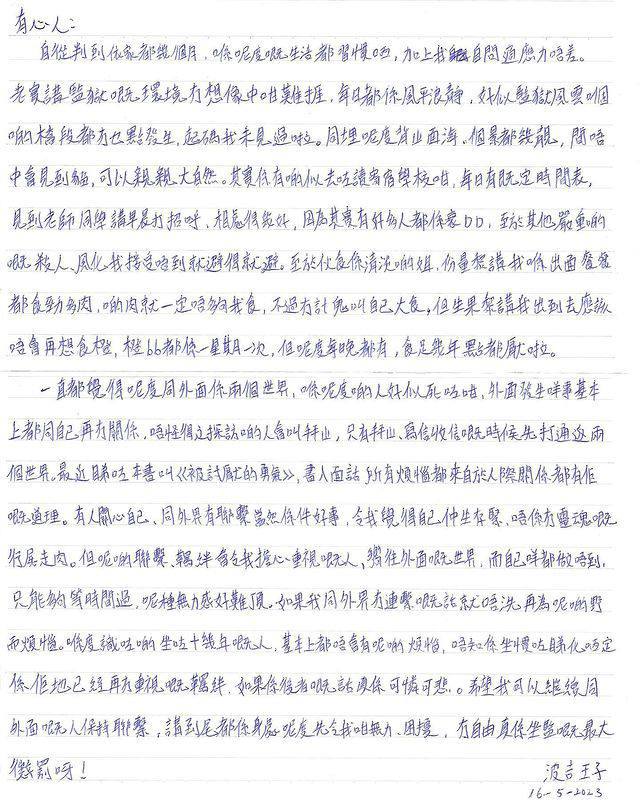 有心人：
自從判到依家都幾個月，喺呢度嘅生活都習慣晒，加上我自問適應力唔差。
老實講監獄嘅環境冇想像中咁難捱，每日都係風平浪靜，好似監獄風雲嗰
啲橋段都冇乜點發生，起碼我未見過啦。同埋呢度背山面海，個景都幾靚，間唔
中會見到貓，可以親親大自然。其實係有啲似去咗讀寄宿學校咁，每日有既定時間表，
見到老師同學講早晨打招呼，相處得幾好，因為其實有好多人都係家DD，至於其他嚴重啲
嘅殺人、風化我接受唔到就避得就避。至於伙食係清淡啲姐，份量黎講我喺出面餐餐
都食勁多肉，啲肉就一定唔夠我食，不過冇計鬼叫自己大食，但生果黎講我出到去應該
唔會再想食橙，橙bb都係一星期一次，但呢度每晚都有，食足幾年點都厭啦。
一直都覺得呢度同外面係兩個世界，喺呢度啲人好似死咗咁，外面發生咩事基本
上都同自己再冇關係，唔怪得之探訪啲人會叫拜山，只有拜山、寫信收信嘅時候先打通返兩
個世界。最近睇咗本書叫《被討厭的勇氣》，書入面話所有煩惱都來自於人際關係都有佢
嘅道理。有人關心自己、同外界有聯繫當然係件好事，令我覺得自己仲生存緊、唔係冇靈魂嘅
行屍走肉。但呢啲聯繫、羈絆會令我擔心重視嘅人、嚮往外面嘅世界，而自己咩都做唔到，
只能夠等時間過，呢種無力感好難頂。如果我同外界冇連繫嘅話就唔洗再為呢啲野
而煩惱。喺度識咗啲坐咗十幾年嘅人，基本上都唔會有呢啲煩惱，唔知係坐慣咗睇化咗定
係佢地已經再冇重視嘅羈絆，如果係後者嘅話真係可憐可悲。希望我可以繼續同
外面嘅人保持聯繫，講到尾都係身處呢度先令我咁無力、困擾，冇自由真係坐監嘅最大
懲罰呀！
波吉王子
16-5-2023